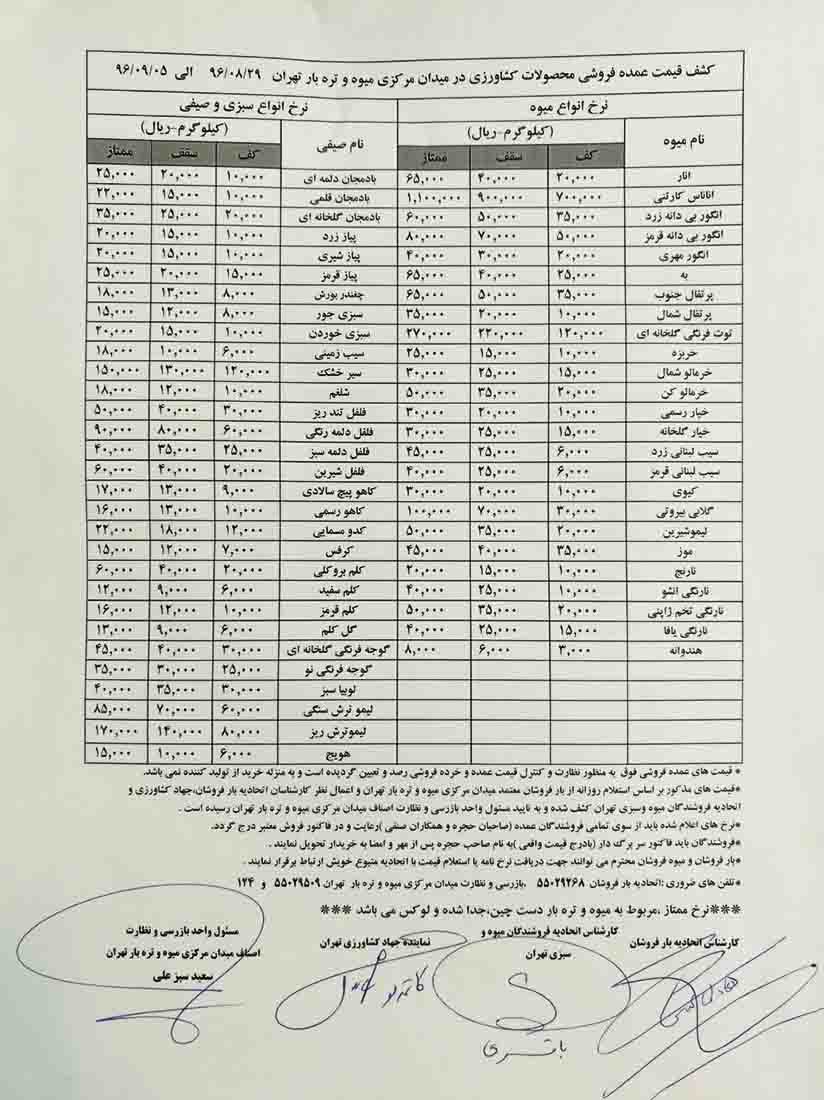 کشف قیمت عمده فروشی محصولات کشاورزی در میدان مرکزی میوه و تره بار تهران ۹۶/۰۸/۲۹ الی ۹۶/۰۹/۰۵
نرخ انواع میوه
نام میوه (کیلوگرم-ریال)
کف سقف ممتاز
انار ۲۰,۰۰۰ ۴۰,۰۰۰ ۶۵,۰۰۰
اناناس کارتنی ۷۰۰,۰۰۰ ۹۰۰,۰۰۰ ۱,۱۰۰,۰۰۰
انگور بی دانه زرد ۳۵,۰۰۰ ۵۰,۰۰۰ ۶۰,۰۰۰
انگور بی دانه قرمز ۵۰,۰۰۰ ۷۰,۰۰۰ ۸۰,۰۰۰
انگور مهری ۲۰,۰۰۰ ۳۰,۰۰۰ ۴۰,۰۰۰
به ۲۵,۰۰۰ ۴۰,۰۰۰ ۶۵,۰۰۰
پرتقال جنوب ۳۵,۰۰۰ ۵۰,۰۰۰ ۶۵,۰۰۰
پرتقال شمال ۱۰,۰۰۰ ۲۰,۰۰۰ ۳۵,۰۰۰
توت فرنگی گلخانه ای ۱۲۰,۰۰۰ ۲۲۰,۰۰۰ ۲۷۰,۰۰۰
خربزه ۱۰,۰۰۰ ۱۵,۰۰۰ ۲۵,۰۰۰
خرمالو شمال ۱۵,۰۰۰ ۲۵,۰۰۰ ۳۰,۰۰۰
خرمالو کن ۲۰,۰۰۰ ۳۵,۰۰۰ ۵۰,۰۰۰
خیار رسمی ۱۰,۰۰۰ ۲۰,۰۰۰ ۳۰,۰۰۰
خیار گلخانه ۱۵,۰۰۰ ۲۵,۰۰۰ ۳۰,۰۰۰
سیب لبنانی زرد ۶,۰۰۰ ۲۵,۰۰۰ ۴۵,۰۰۰
سیب لبنانی قرمز ۶,۰۰۰ ۲۵,۰۰۰ ۴۰,۰۰۰
کیوی ۱۰,۰۰۰ ۲۰,۰۰۰ ۳۰,۰۰۰
گلابی بیروتی ۳۰,۰۰۰ ۷۰,۰۰۰ ۱۰۰,۰۰۰
لیموشیرین ۲۰,۰۰۰ ۳۵,۰۰۰ ۵۰,۰۰۰
موز ۳۵,۰۰۰ ۴۰,۰۰۰ ۴۵,۰۰۰
نارنج ۱۰,۰۰۰ ۱۵,۰۰۰ ۲۰,۰۰۰
نارنگی انشو ۱۰,۰۰۰ ۲۵,۰۰۰ ۴۰,۰۰۰
نارنگی تخم ژاپنی ۲۰,۰۰۰ ۳۵,۰۰۰ ۵۰,۰۰۰
نارنگی یافا ۱۵,۰۰۰ ۲۵,۰۰۰ ۴۰,۰۰۰
هندوانه ۳,۰۰۰ ۶,۰۰۰ ۸,۰۰۰
نرخ انواع سبزی و صیفی
نام صیفی (کیلوگرم-ریال)
کف سقف ممتاز
بادمجان دلمه ای ۱۰,۰۰۰ ۲۰,۰۰۰ ۲۵,۰۰۰
بادمجان قلمی ۱۰,۰۰۰ ۱۵,۰۰۰ ۲۲,۰۰۰
بادمجان گلخانه ای ۲۰,۰۰۰ ۲۵,۰۰۰ ۳۵,۰۰۰
پیاز زرد ۱۰,۰۰۰ ۱۵,۰۰۰ ۲۰,۰۰۰
پیاز شیری ۱۰,۰۰۰ ۱۵,۰۰۰ ۲۰,۰۰۰
پیاز قرمز ۱۵,۰۰۰ ۲۰,۰۰۰ ۲۵,۰۰۰
چغندر بورش ۸,۰۰۰ ۱۳,۰۰۰ ۱۸,۰۰۰
سبزی جور ۸,۰۰۰ ۱۲,۰۰۰ ۱۵,۰۰۰
سبزی خوردن ۱۰,۰۰۰ ۱۵,۰۰۰ ۲۰,۰۰۰
سیب زمینی ۶,۰۰۰ ۱۰,۰۰۰ ۱۸,۰۰۰
سیر خشک ۱۲۰,۰۰۰ ۱۳۰,۰۰۰ ۱۵۰,۰۰۰
شلغم ۱۰,۰۰۰ ۱۲,۰۰۰ ۱۸,۰۰۰
فلفل تند ریز ۳۰,۰۰۰ ۴۰,۰۰۰ ۵۰,۰۰۰
فلفل دلمه رنگی ۶۰,۰۰۰ ۸۰,۰۰۰ ۹۰,۰۰۰
فلفل دلمه سبز ۲۵,۰۰۰ ۳۵,۰۰۰ ۴۰,۰۰۰
فلفل شیرین ۲۰,۰۰۰ ۴۰,۰۰۰ ۶۰,۰۰۰
کاهو پیچ سالادی ۹,۰۰۰ ۱۳,۰۰۰ ۱۷,۰۰۰
کاهو رسمی ۱۰,۰۰۰ ۱۳,۰۰۰ ۱۶,۰۰۰
کدو مسمایی ۱۲,۰۰۰ ۱۸,۰۰۰ ۲۲,۰۰۰
کرفس ۷,۰۰۰ ۱۲,۰۰۰ ۱۵,۰۰۰
کلم بروکلی ۲۰,۰۰۰ ۴۰,۰۰۰ ۶۰,۰۰۰
کلم سفید ۶,۰۰۰ ۹,۰۰۰ ۱۲,۰۰۰
کلم قرمز ۱۰,۰۰۰ ۱۲,۰۰۰ ۱۶,۰۰۰
گل کلم ۶,۰۰۰ ۹,۰۰۰ ۱۳,۰۰۰
گوجه فرنگی گلخانه ای ۳۰,۰۰۰ ۴۰,۰۰۰ ۴۵,۰۰۰
گوجه فرنگی نو ۲۵,۰۰۰ ۳۰,۰۰۰ ۳۵,۰۰۰
لوبیا سبز ۳۰,۰۰۰ ۳۵,۰۰۰ ۴۰,۰۰۰
لیمو ترش سنگی ۶۰,۰۰۰ ۷۰,۰۰۰ ۸۵,۰۰۰
لیموترش ریز ۸۰,۰۰۰ ۱۴۰,۰۰۰ ۱۷۰,۰۰۰
هویج ۶,۰۰۰ ۱۰,۰۰۰ ۱۵,۰۰۰
* قیمت های عمده فروشی فوق به منظور نظارت و کنترل قیمت عمده و خرده فروشی رصد و تعیین گردیده است و به منزله خرید از تولید کننده نمی باشد.
*قیمت های مذکور بر اساس استعلام روزانه از بار فروشان معتمد میدان مرکزی میوه و تره بار تهران و اعمال نظر کارشناسان اتحادیه بار فروشان،جهاد کشاورزی و
اتحادیه فروشندگان میوه وسبزی تهران کشف شده و به تایید مسئول واحد بازرسی و نظارت اصناف میدان مرکزی میوه و تره بار تهران رسیده است .
*نرخ های اعلام شده باید از سوی تمامی فروشندگان عمده (صاحبان حجره و همکاران صنفی )رعایت و در فاکتور فروش معتبر درج گردد.
*فروشندگان باید فاکتور سر برگ دار (بادرج قیمت واقعی )به نام صاحب حجره پس از مهر و امضا به خریدار تحویل نمایند .
*بار فروشان و میوه فروشان محترم می توانند جهت دریافت نرخ نامه یا استعلام قیمت با اتحادیه متبوع خویش ارتباط برقرار نمایند .
*تلفن های ضروری :اتحادیه بار فروشان ۵۵۰۲۹۲۶۸ ،بازرسی و نظارت میدان مرکزی میوه و تره بار تهران ۵۵۰۲۹۵۰۹ و ۱۲۴
***نرخ ممتاز ،مربوط به میوه و تره بار دست چین،جدا شده و لوکس می باشد ***
کارشناس اتحادیه بار فروشان
کارشناس اتحادیه فروشندگان میوه و
سبزی تهران
نماینده جهاد کشاورزی تهران
مسئول واحد بازرسی و نظارت
اصناف میدان مرکزی میوه و تره بار تهران
سعید سبز علی